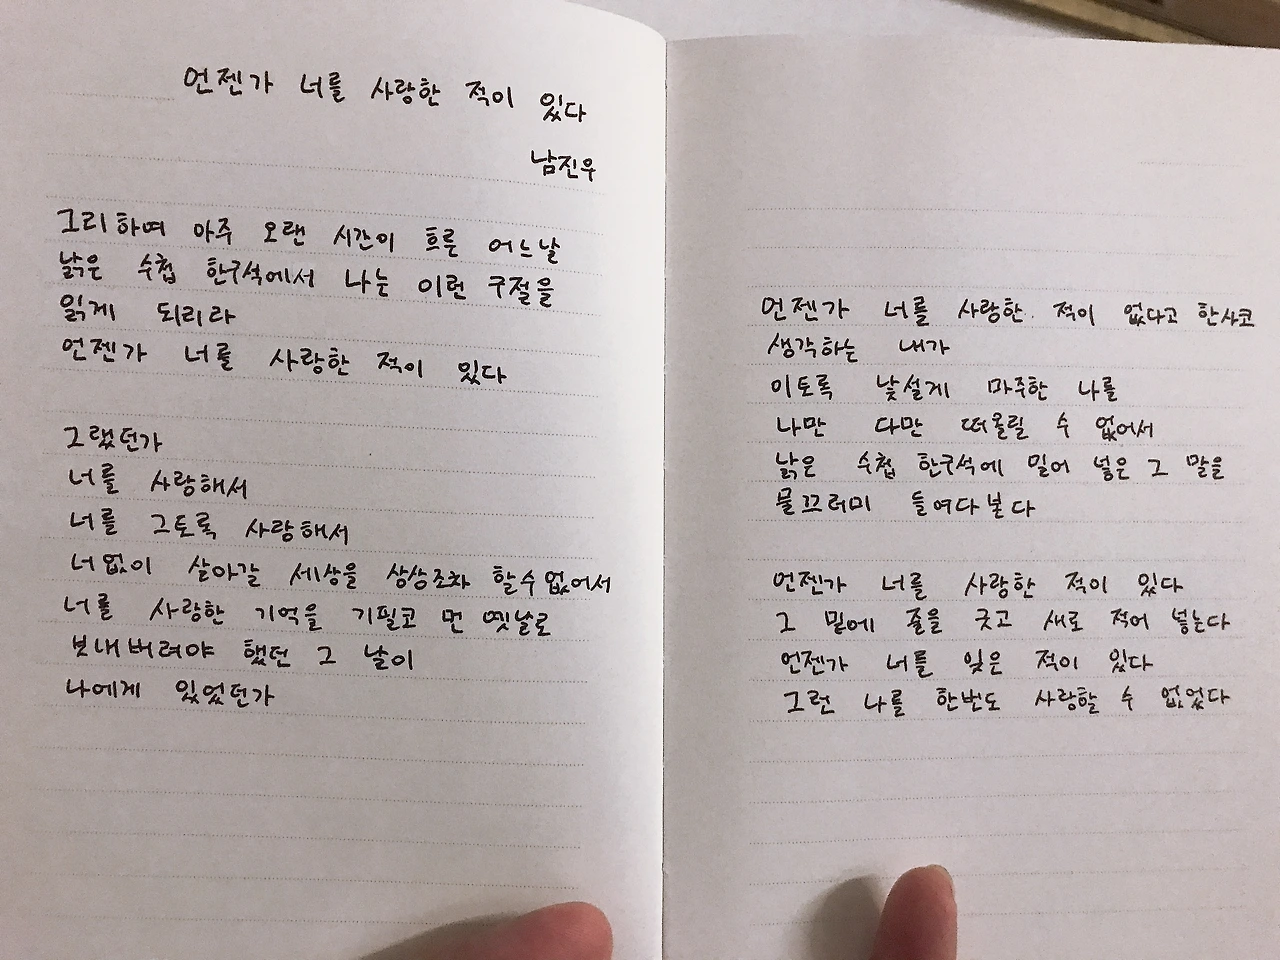 언젠가 너를 사랑한 적이 있다
남진우
그리하여 아주 오랜 시간이 흐른 어느날
낡은 수첩 한구석에서 나는 이런 구절을
읽게 되리라
언젠가 너를 사랑한 적이 있다
그랬던가
너를 사랑해서
너를 그토록 사랑해서
너 없이 살아갈 세상을 상상조차 할 수 없어서
너를 사랑한 기억을 기필코 먼 옛날로
보내버려야 했던 그 날이
나에게 있었던가
언젠가 너를 사랑한 적이 없다고 한사코
생각하는 내가
이토록 낯설게 마주한 나를
나만 다만 떠올릴 수 없어서
낡은 수첩 한구석에 밀어 넣은 그 말을
물끄러미 들여다본다
언젠가 너를 사랑한 적이 있다
그 밑에 줄을 긋고 새로 적어 넣는다
언젠가 너를 잊은 적이 있다
그런 나를 한번도 사랑할 수 없었다